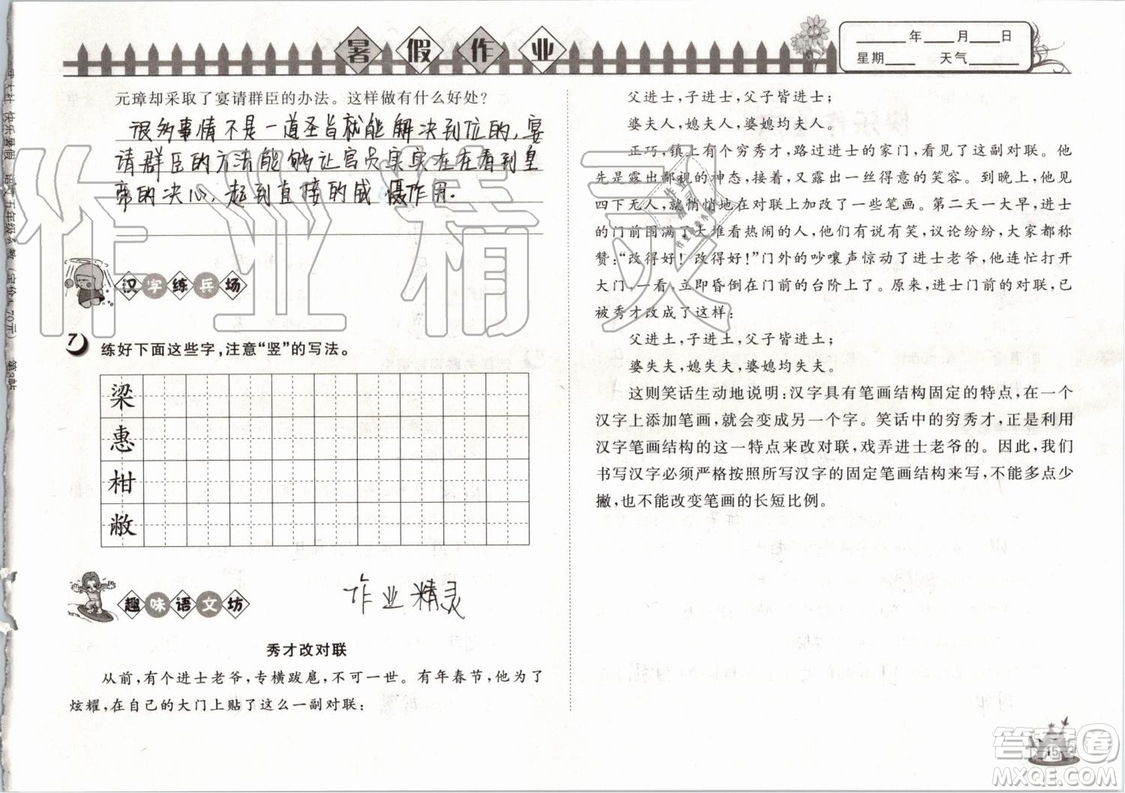 暑假作业
____年____月____日
星期____ 天气____
元璋却采取了宴请群臣的办法。这样做有什么好处?
很多事情不是一道圣旨就能解决到位的，宴
请群臣的方法能够让官员实实在在看到皇
帝的决心，起到直接的威慑作用.
汉字练兵场
7 练好下面这些字,注意“竖”的写法。
梁
惠
柑
敝
作业精灵
趣味语文坊
秀才改对联
从前,有个进士老爷,专横跋扈,不可一世。有年春节,他为了
炫耀,在自己的大门上贴了这么一副对联:
父进士,子进士,父子皆进士;
婆夫人,媳夫人,婆媳均夫人。
正巧,镇上有个穷秀才,路过进士的家门,看见了这副对联。他
先是露出鄙视的神态,接着,又露出一丝得意的笑容。到了晚上,他见
四下无人,就悄悄地在对联上加改了一些笔画。第二天一大早,进士
的门前围满了大堆看热闹的人,大家都在有说有笑,议论纷纷,称赞:
“改得好!改得好!”门外的吵嚷声惊动了进士老爷,他连忙打开
大门,一看,立即昏倒在门前的台阶上了。原来,进士门前的对联
被秀才改成了这样:
父进土,子进土,父子皆进土;
婆失夫,媳失夫,婆媳均失夫。
这则笑话生动地说明:汉字具有笔画结构固定的特点,在一个
汉字上添加笔画,就会变成另一个字。笑话中的穷秀才,正是利用
汉字笔画结构的这一特点来改对联,戏弄进士老爷的。因此,我们
书写汉字必须严格按照所写汉字的固定笔画结构来写,不能多点少
撇,也不能改变笔画的长短比例。
15
作业精灵
答案圈
MXQE.COM